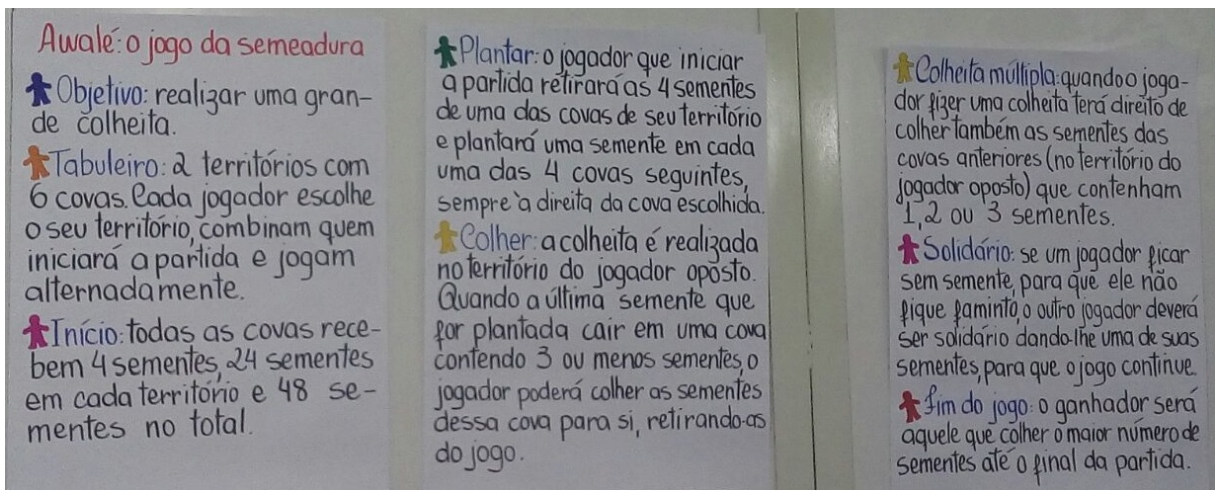 Awalé: o jogo da semeadura
Objetivo: realizar uma gran-
de colheita.
Tabuleiro: 2 territórios com
6 covas. Cada jogador escolhe
o seu território, combinam quem
iniciará a partida e jogam
alternadamente.
Início: todas as covas rece-
bem 4 sementes, 24 sementes
em cada território e 48 se-
mentes no total.
Plantar: o jogador que iniciar
a partida retirará as 4 sementes
de uma das covas de seu território
e plantará uma semente em cada
uma das 4 covas seguintes,
sempre à direita da cova escolhida.
Colher: a colheita é realizada
no território do jogador oposto.
Quando a última semente que
for plantada cair em uma cova
contendo 3 ou menos sementes, o
jogador poderá colher as sementes
dessa cova para si, retirando-as
do jogo.
Colheita múltipla: quando o joga-
dor fizer uma colheita terá direito de
colher também as sementes das
covas anteriores (no território do
jogador oposto) que contenham
1, 2 ou 3 sementes.
Solidário: se um jogador ficar
sem semente, para que ele não
fique faminto, o outro jogador deverá
ser solidário dando-lhe uma de suas
sementes, para que o jogo continue.
Fim do jogo: o ganhador será
aquele que colher o maior número de
sementes até o final da partida.